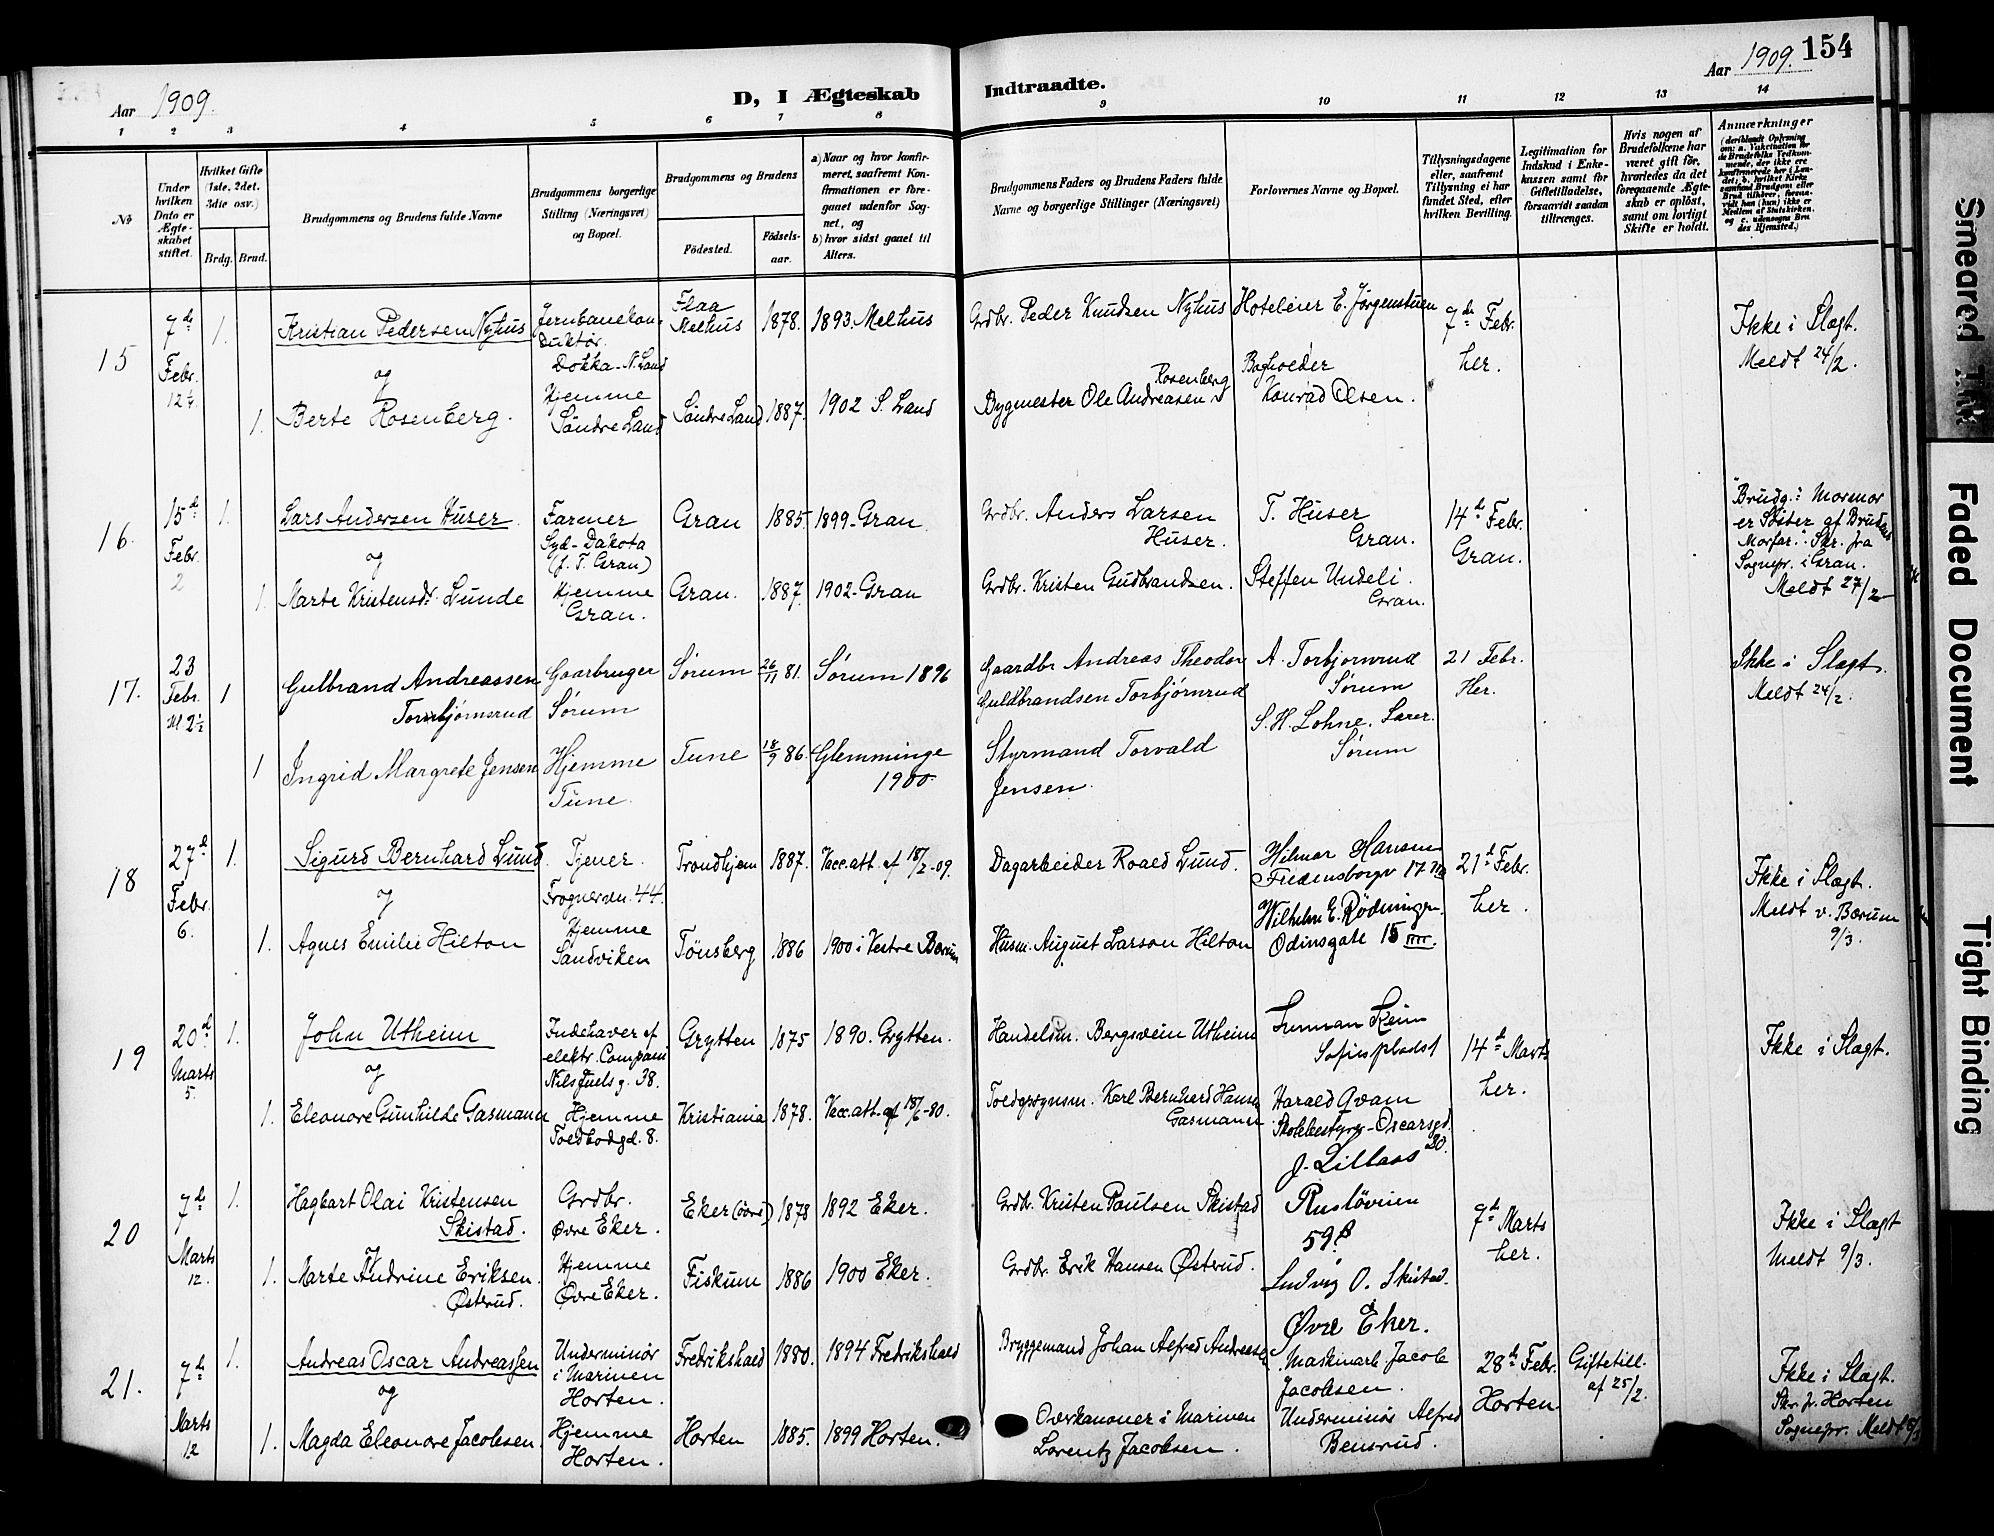 Aar 1909.
D, I Ægteskab Indtraadte.
Aar 1909. 154
1 2 3 4 5 6 7 8 9 10 11 12 13 14
№
Under hvilken Dato er Ægteskabet stiftet.
Hvilket Gifte (1ste, 2det, 3die osv.)
Brdg. Brud.
Brudgommens og Brudens fulde Navne
Brudgommens borgerlige Stilling (Næringsvei) og Bopæl.
Brudgommens og Brudens
Födested. Födsels-aar.
a) Naar og hvor konfirmeret, saafremt Konfirmationen er foregaaet udenfor Sognet, og
b) hvor sidst gaaet til Alters.
Brudgommens Faders og Brudens Faders fulde Navne og borgerlige Stillinger (Næringsvei)
Forlovernes Navne og Bopæl.
Tillysningsdagene eller, saafremt Tillysning ei har fundet Sted, efter hvilken Bevilling.
Legitimation for Indskud i Enkekassen samt for Giftetilladelse, forsaavidt saadan tiltrænges.
Hvis nogen af Brudefolkene har været gift för, hvorledes da det foregaaende Ægteskab er oplöst, samt om lovligt Skifte er holdt.
Anmærkninger
15 7de Febr. 12 1. Kristian Pedersen Nyhus Jernbanekonduktør. Dokka - N. Land Flaa Melhus 1878. 1893. Melhus Grdbr. Peder Knudsen Nyhus Hoteleier E. Jørgenstuen 7de Febr. her. Ikke i Slægt. Meldt 24/2.
og
1. Berte Rosenberg. Hjemme Søndre Land Søndre Land 1887. 1902 S. Land Bygmester Ole Andreasen Rosenberg Bogholder Konrad Olsen.
16 15d Febr. 2 1. Lars Andersen Huser. Farmer Syd-Dakota (f. T. Gran) Gran 1885. 1899 - Gran. Grdbr. Anders Larsen Huser. T. Huser Gran. 14d Febr. Gran. Brudg.s Mormor er Søster af Brudens Morfar. Skr. fra Sognepr. i Gran. Meldt 27/2
og
1. Marte Kristensdr. Lunde Hjemme Gran. Gran. 1887. 1902 - Gran Grdbr. Kristen Gudbrandsen. Steffen Undeli. Gran.
17. 23 Febr. Kl 2½ 1 Gulbrand Andreassen Torbjørnsrud Gaarbruger Sørum Sørum 26/11 81. Sørum 1896 Gaardbr Andreas Theodor Guldbrandsen Torbjørnrud A. Torbjørnrud Sørum 21 Febr. Her. Ikke i Slægt. Meldt 24/2.
1 Ingrid Margrete Jensen Hjemme Tune. Tune 18/9 86. Glemminge 1900. Styrmand Torvald Jensen. S. H. Lohne. Lærer. Sørum
18 27d Febr. 6. 1. Sigurd Bernhard Lund. Tjener. Frognervn. 44. Trondhjem 1887. Vacc.att. af 18/2-09. Dagarbeider Roald Lund. Hilmar Hansen Fredensborgv 17 21d Febr. her. Ikke i Slægt. Meldt v. Bærum 9/3.
og
1. Agnes Emilie Hilton Hjemme Sandviken Tønsberg 1886 1900 i Vestre Bærum Husm. August Larson Hilton Wilhelm E. Rødningen. Odinsgate 15 IIII.
19 20d Marts 5. 1. John Utheim Indehaver af elektr. Compani Nils Juels g. 38. Grytten 1875 1890. Grytten. Handelsm. Bergsvein Utheim Sofiesplads 1 14d Marts her. Ikke i Slægt.
og
1. Eleonore Gunhilde Gasmann Hjemme Toldbodgd. 8. Kristiania 1878. Vacc.att. af 18/6-80. Toldopsynsm. Karl Bernhard Hansen Gasmann Harald Qvam Skolebestyrer - Oscarsgd. 20.
20 7de Marts 12. 1. Hagbart Olai Kristensen Skistad. Grdbr. Øvre Eker. Eker (Øvre) 1878 1892 Eker. Grdbr. Kristen Paulsen Skistad J. Lillaas Rusløveien 59B 7de Marts her. Ikke i Slægt Meldt 9/3.
og
1. Marte Andrine Eriksen Østerud. Hjemme Øvre Eker. Fiskum 1886 1900 Eker. Grdbr. Erik Hansen Østrud. Ludvig O. Skistad. Øvre Eker.
21. 7de Marts 12 1. Andreas Oscar Andreassen Underminør i Marinen Horten. Fredrikshald 1880. 1894 Fredrikshald Bryggemand Johan Alfred Andreasen Maskinarb. Jacob Jacobsen. 28de Febr. Horten. Giftetill. af 25/2. Ikke i Slægt. Skr. fr. Horten Sognepr. Meldt 8/3
og
1. Magda Eleonore Jacobsen. Hjemme Horten. Horten 1885. 1899 Horten. Overkanoner i Marinen Lorentz Jacobsen. Underminør Alfred Bensrud.
Smeared Ink
Faded Document
Tight Binding